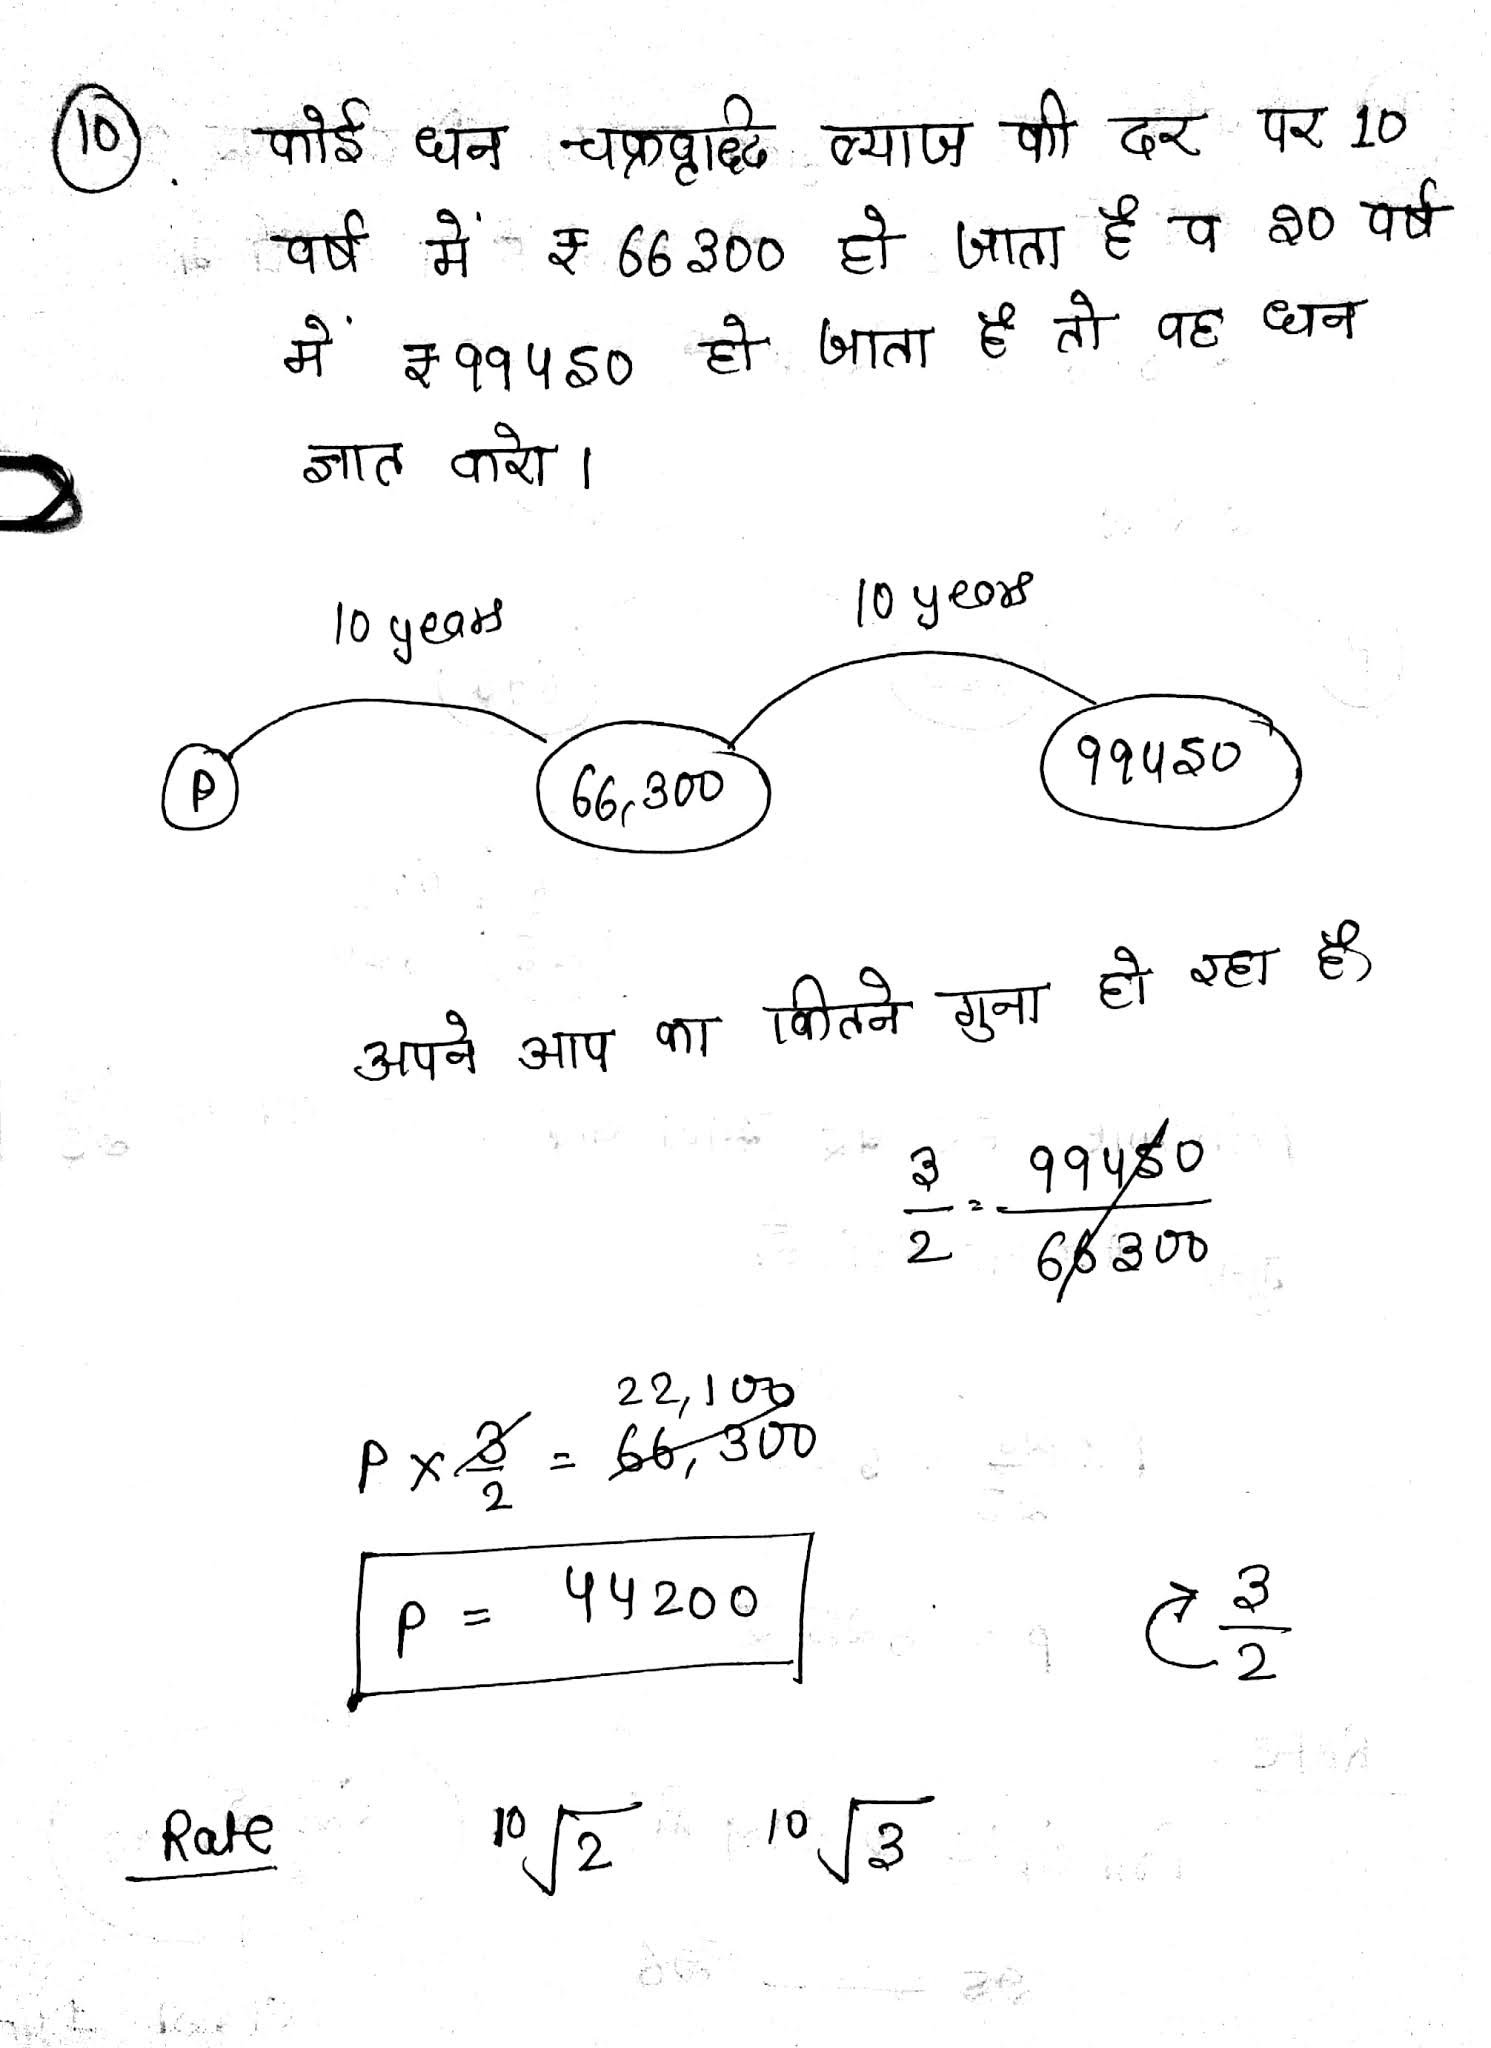 10. कोई धन चक्रवृद्धि ब्याज की दर पर 10
वर्ष में ₹ 66300 हो जाता है व 20 वर्ष
में ₹ 99450 हो जाता है तो वह धन
ज्ञात करो।
10 years 10 years
P 66,300 99450
अपने आप का कितने गुना हो रहा है
3/2 = 99450/66300
22,100
P × 3/2 = 66,300
P = 44200
3/2
Rate ¹⁰√2 ¹⁰√3